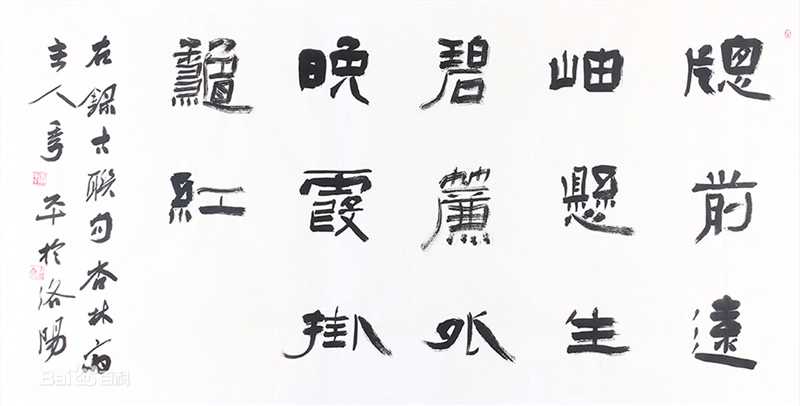 牕前遠
岫懸生
碧簾外
晚霞掛
紅
右錄古聯句杏林
主人平於洛陽
Bai百科